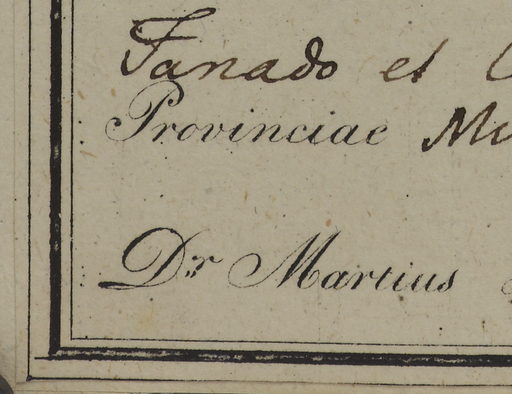 Fanado et
Provinciae
Dr Martius